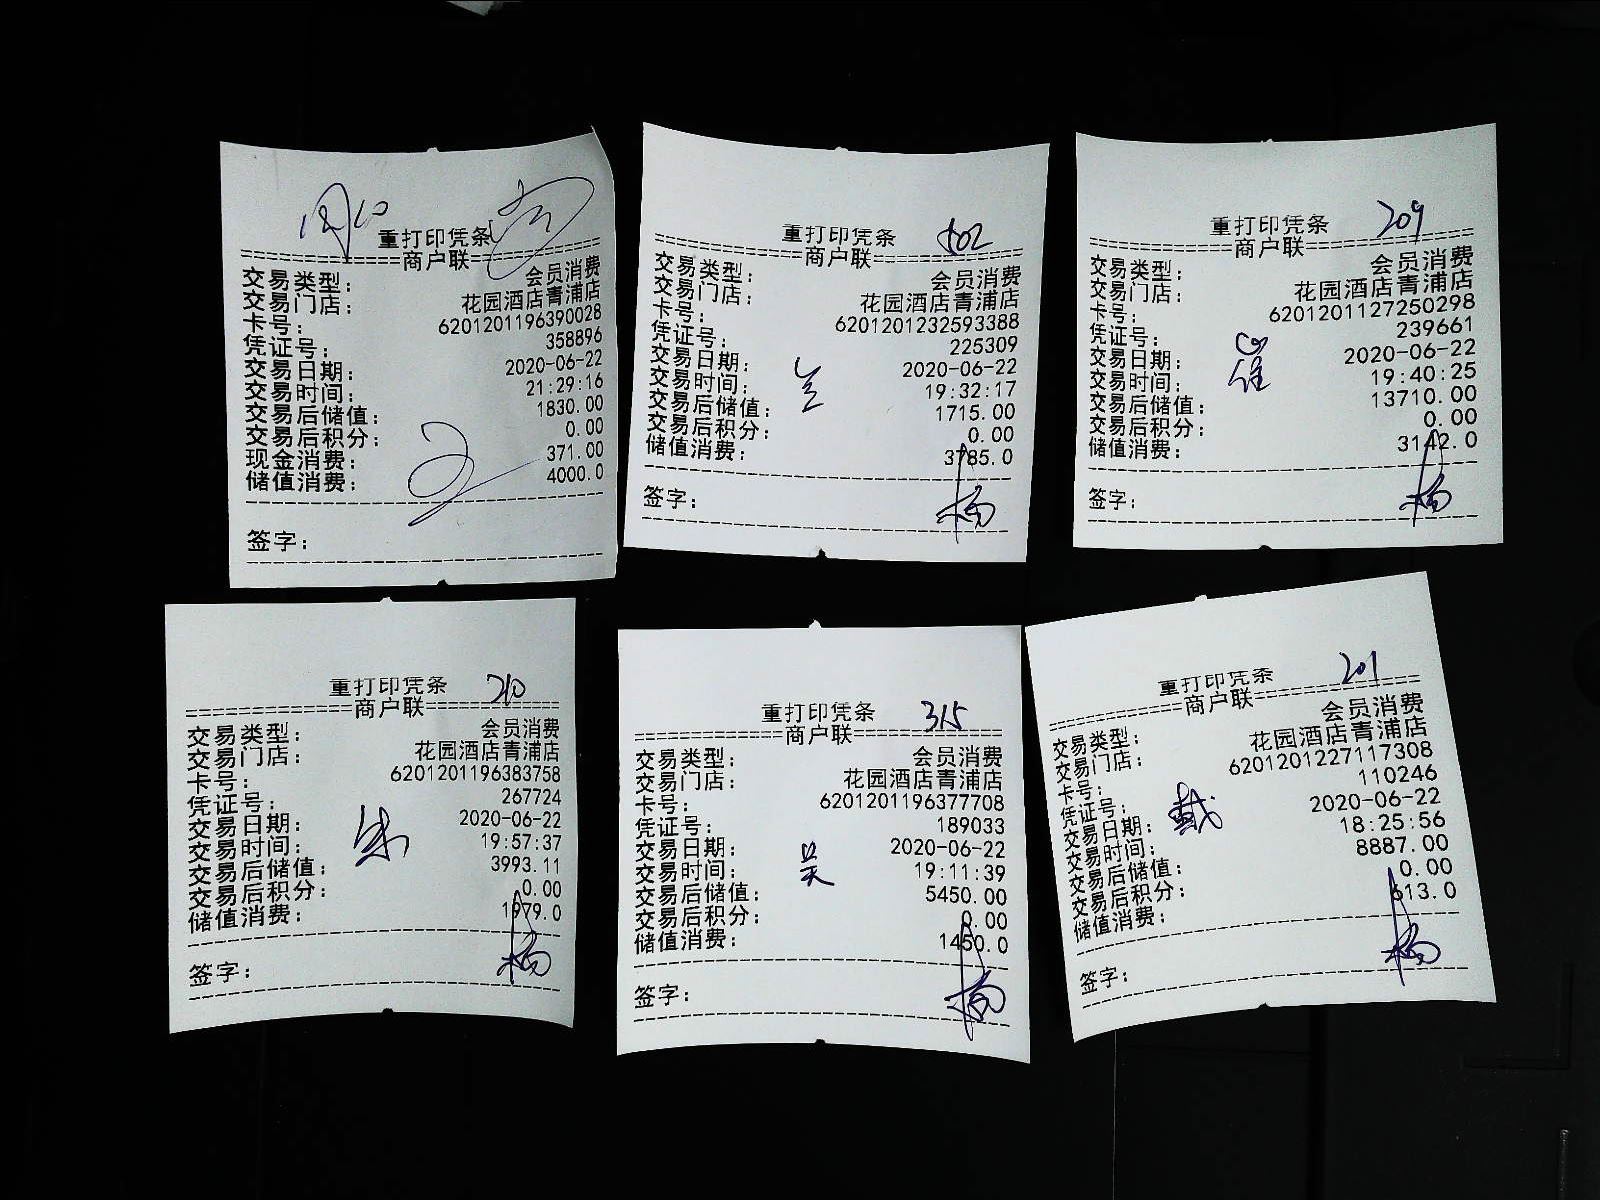 重打印凭条
商户联
交易类型： 会员消费
交易门店： 花园酒店青浦店
卡号： 6201201196390028
凭证号： 358896
交易日期： 2020-06-22
交易时间： 21:29:16
交易后储值： 1830.00
交易后积分： 0.00
现金消费： 371.00
储值消费： 4000.0
签字：
重打印凭条 502
商户联
交易类型： 会员消费
交易门店： 花园酒店青浦店
卡号： 6201201232593388
凭证号： 225309
交易日期： 2020-06-22
交易时间： 19:32:17
交易后储值： 1715.00
交易后积分： 0.00
储值消费： 3785.0
签字： 杨
重打印凭条 209
商户联
交易类型： 会员消费
交易门店： 花园酒店青浦店
卡号： 6201201127250298
凭证号： 239661
交易日期： 2020-06-22
交易时间： 19:40:25
崔
交易后储值： 13710.00
交易后积分： 0.00
储值消费： 3142.0
签字： 杨
重打印凭条 210
商户联
交易类型： 会员消费
交易门店： 花园酒店青浦店
卡号： 6201201196383758
凭证号： 267724
交易日期： 2020-06-22
交易时间： 19:57:37
朱
交易后储值： 3993.11
交易后积分： 0.00
储值消费： 1979.0
签字： 杨
重打印凭条 315
商户联
交易类型： 会员消费
交易门店： 花园酒店青浦店
卡号： 6201201196377708
凭证号： 189033
交易日期： 2020-06-22
交易时间： 19:11:39
吴
交易后储值： 5450.00
交易后积分： 0.00
储值消费： 1450.0
签字： 杨
重打印凭条 201
商户联
交易类型： 会员消费
交易门店： 花园酒店青浦店
卡号： 6201201227117308
凭证号： 110246
交易日期： 2020-06-22
戴
交易时间： 18:25:56
交易后储值： 8887.00
交易后积分： 0.00
储值消费： 613.0
签字： 杨